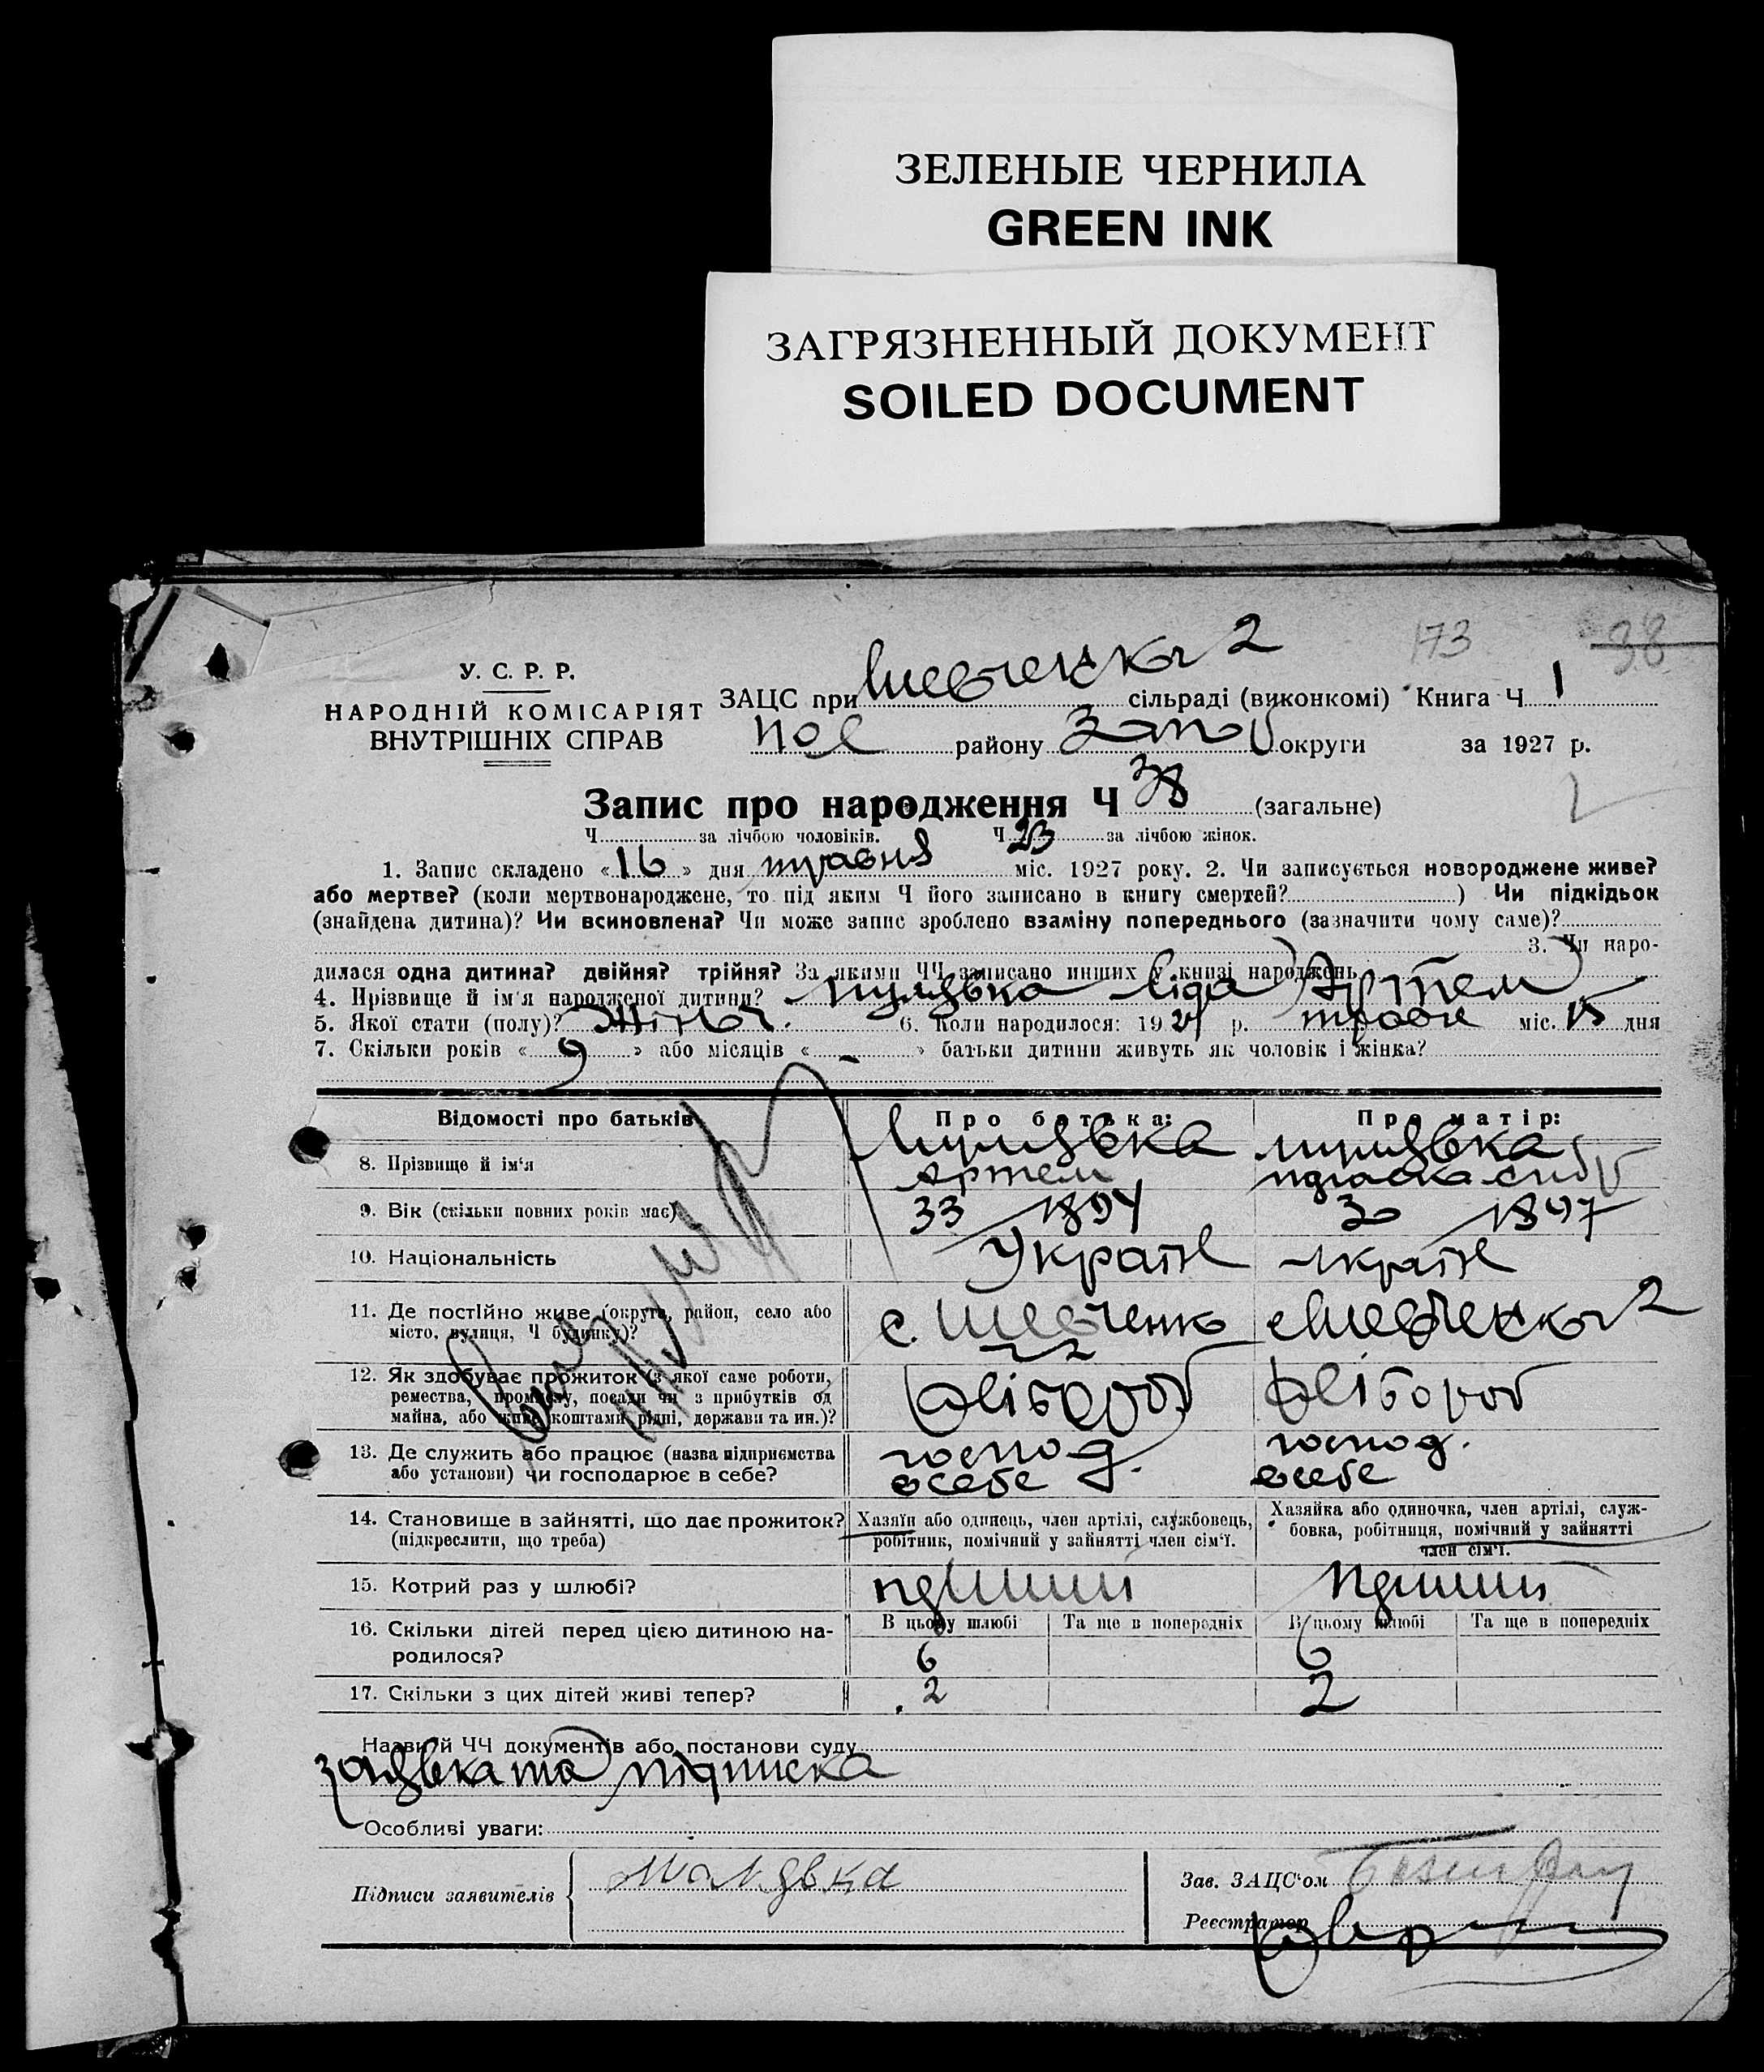 ЗЕЛЕНЫЕ ЧЕРНИЛА
GREEN INK
ЗАГРЯЗНЕННЫЙ ДОКУМЕНТ
SOILED DOCUMENT
173 38
У. С. Р. Р.
НАРОДНІЙ КОМІСАРІЯТ
ВНУТРІШНІХ СПРАВ
ЗАЦС при Шевченко 2 сільраді (виконкомі) Книга Ч 1
району Запоr округи за 1927 р.
Запис про народження Ч 38 (загальне)
Ч за лічбою чоловіків. Ч 23 за лічбою жінок.
1. Запис складено «16» дня травня міс. 1927 року. 2. Чи записується новороджене живе?
або мертве? (коли мертвонароджене, то під яким Ч його записано в книгу смертей? ) Чи підкідьок
(знайдена дитина)? Чи всиновлена? Чи може запис зроблено взаміну попереднього (зазначити чому саме)?
3. Чи наро-
дилася одна дитина? двійня? трійня? За якими ЧЧ записано инших у книзі народжень
4. Прізвище й ім'я народженої дитини? Ліда Артем
5. Якої стати (полу)? жіноч. 6. Коли народилося: 1927 р. травня міс. 15 дня
7. Скільки років «9» або місяців «-» батьки дитини живуть як чоловік і жінка?
Відомості про батьків Про батька: Про матір:
8. Прізвище й ім'я
Артем
9. Вік (скільки повних років має) 33 1894 30 1897
10. Національність Україн Україн
11. Де постійно живе (округа, район, село або
місто, вулиця, Ч будинку)?
с. Шевченко 2 с Шевченко 2
12. Як здобуває прожиток (з якої саме роботи,
ремества, промислу, посади чи з прибутків од
майна, або живе коштами рідні, держави та ин.)?
хлібороб хлібороб
13. Де служить або працює (назва підприємства
або установи) чи господарює в себе?
господ. всебе господ. всебе
14. Становище в зайнятті, що дає прожиток?
(підкреслити, що треба)
Хазяїн або одинець, член артілі, службовець,
робітник, помічний у зайнятті член сім'ї.
Хазяйка або одиночка, член артілі, служ-
бовка, робітниця, помічний у зайнятті
член сім'ї.
15. Котрий раз у шлюбі?
16. Скільки дітей перед цією дитиною на-
родилося?
В цьому шлюбі Та ще в попередніх В цьому шлюбі Та ще в попередніх
6 6
17. Скільки з цих дітей живі тепер? 2 2
Назви й ЧЧ документів або постанови суду
заявка та підписка
Особливі уваги:
Підписи заявителів
Зав. ЗАЦС'ом
Реєстратор